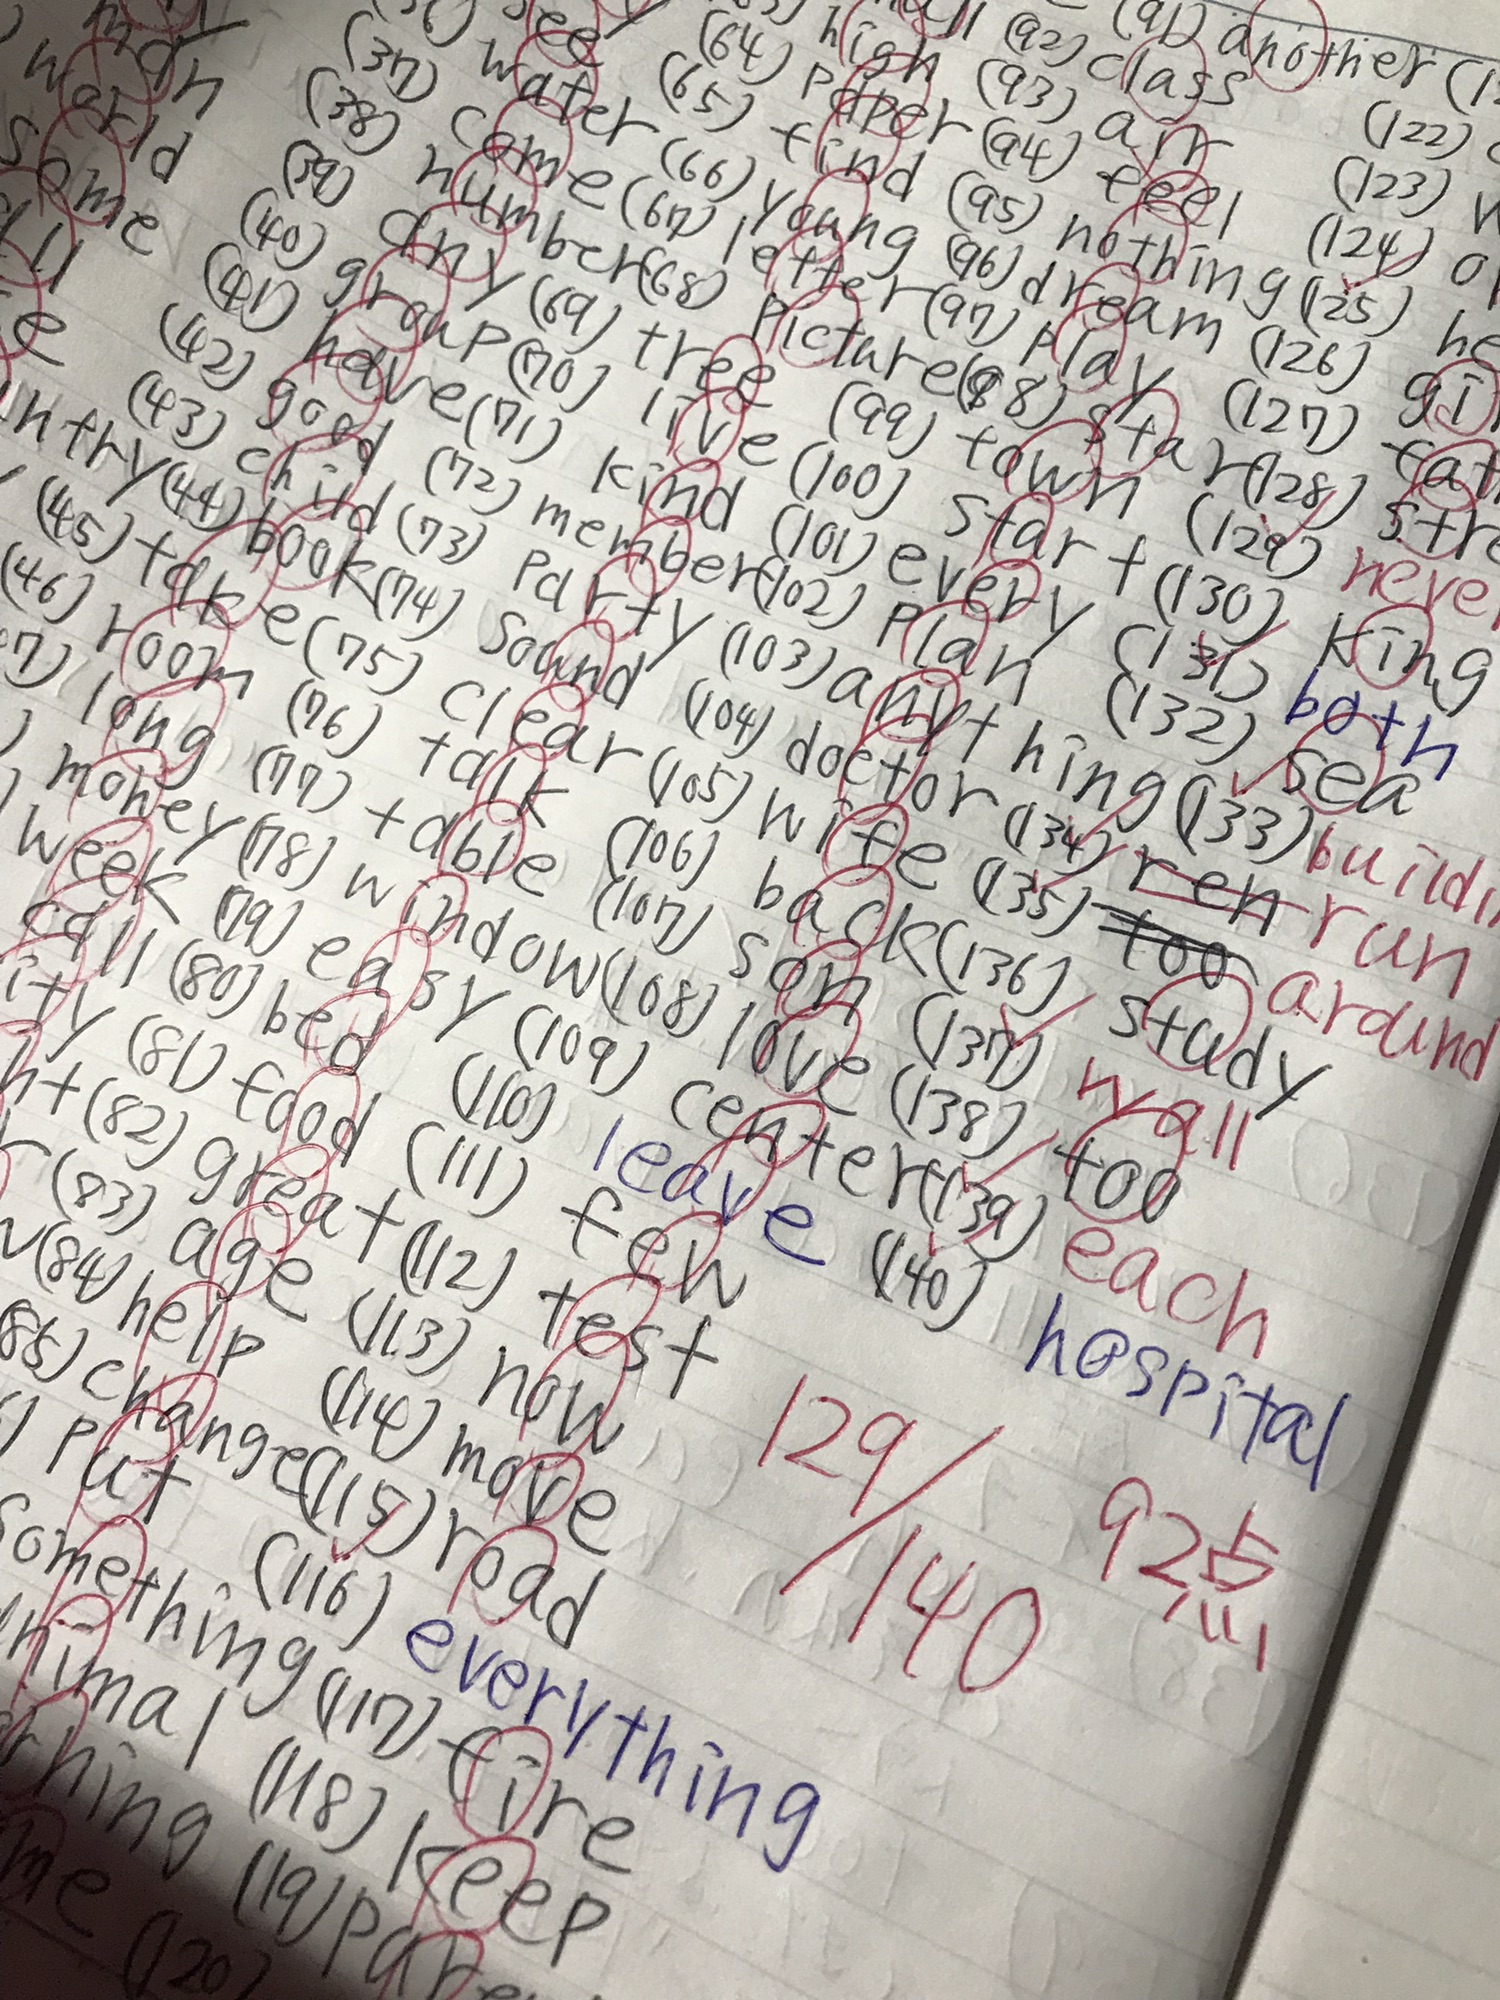 world
some
(37) water
(38) come
(39) number
(40) any
(41) group
(42) have
(43) good
(44) child
(45) book
(46) take
room
long
money
week
call
(64) high
(65) paper
(66) find
(67) young
(68) letter
(69) picture
(70) tree
(71) live
(72) kind
(73) member
(74) party
(75) sound
(76) clear
(77) talk
(78) table
(79) window
(80) easy
(81) bed
(82) food
(83) great
(84) age
(85) help
change
put
something
(91) another
(92) class
(93) air
(94) feel
(95) nothing
(96) dream
(97) play
(98) star
(99) town
(100) start
(101) every
(102) plan
(103) anything
(104) doctor
(105) wife
(106) back
(107) son
(108) love
(109) center
(110) leave
(111) few
(112) test
(113) now
(114) move
(115) road
(116) everything
(117) fire
(118) keep
(119)
(120)
(122)
(123)
(124)
(125)
(126)
(127)
(128)
(129) never
(130) king
(131) both
(132) sea
(133)
(134) ren run
(135) too around
(136) study
(137) wall
(138) too
(139) each
(140) hospital
129/140
92点